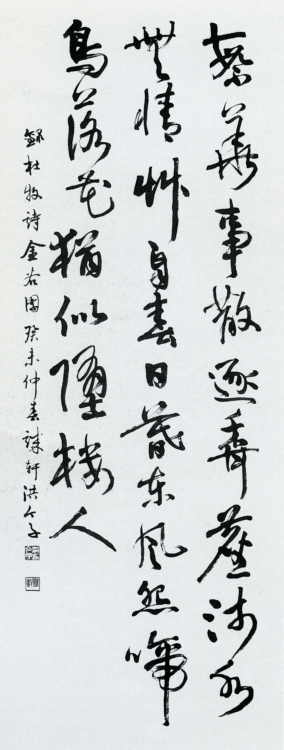 繁華事散逐香塵流水
無情艸自春日暮東風怨啼
鳥落花猶似墮樓人
錄杜牧詩金谷園癸未仲春 軒洪